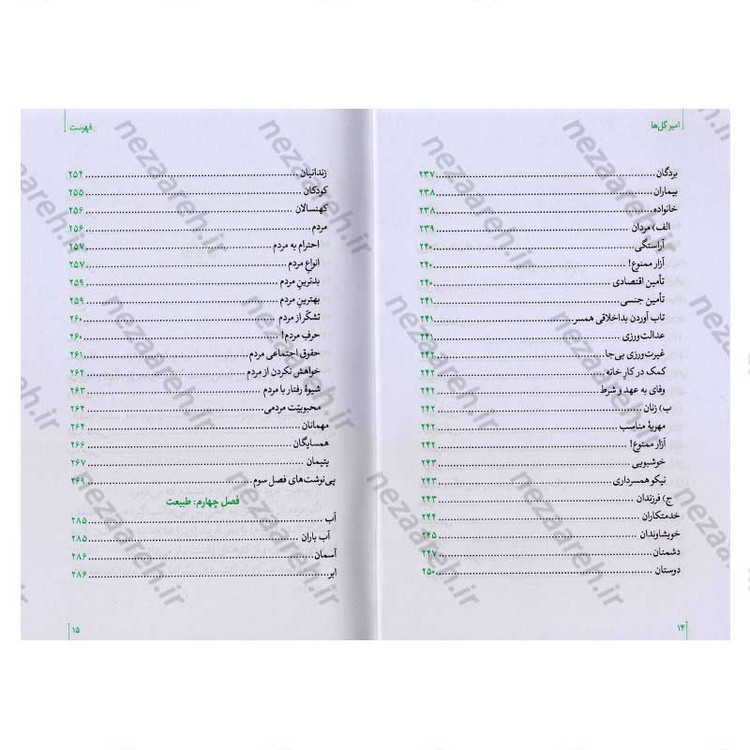 امیر گل‌ها
بردگان ........ ۲۳۷
بیماران ........ ۲۳۸
خانواده ........ ۲۳۸
الف) مردان ........ ۲۳۹
آراستگی ........ ۲۴۰
آزار ممنوع! ........ ۲۴۰
تأمین اقتصادی ........ ۲۴۰
تأمین جنسی ........ ۲۴۱
تاب آوردن بداخلاقی همسر ........ ۲۴۱
عدالت‌ورزی ........ ۲۴۱
غیرت‌ورزی بی‌جا ........ ۲۴۲
کمک در کار خانه ........ ۲۴۲
وفای به عهد و شرط ........ ۲۴۲
ب) زنان ........ ۲۴۲
مهریهٔ مناسب ........ ۲۴۲
آزار ممنوع! ........ ۲۴۲
خوشبویی ........ ۲۴۳
نیکو همسرداری ........ ۲۴۳
ج) فرزندان ........ ۲۴۳
خدمتکاران ........ ۲۴۴
خویشاوندان ........ ۲۴۵
دشمنان ........ ۲۴۷
دوستان ........ ۲۵۰
۱۴
فهرست
زندانیان ........ ۲۵۴
کودکان ........ ۲۵۵
کهنسالان ........ ۲۵۶
مردم ........ ۲۵۶
احترام به مردم ........ ۲۵۷
انواع مردم ........ ۲۵۷
بدترین مردم ........ ۲۵۹
بهترین مردم ........ ۲۵۹
تشکّر از مردم ........ ۲۶۰
حرفِ مردم! ........ ۲۶۰
حقوق اجتماعی مردم ........ ۲۶۱
خواهش نکردن از مردم ........ ۲۶۲
شیوهٔ رفتار با مردم ........ ۲۶۳
محبوبیّت مردمی ........ ۲۶۴
مهمانان ........ ۲۶۴
همسایگان ........ ۲۶۶
یتیمان ........ ۲۶۷
پی‌نوشت‌های فصل سوم ........ ۲۶۹
فصل چهارم: طبیعت
آب ........ ۲۸۵
آب باران ........ ۲۸۵
آسمان ........ ۲۸۶
ابر ........ ۲۸۶
۱۵
nezaareh.ir
nezaareh.ir
nezaareh.ir
nezaareh.ir
nezaareh.ir
nezaareh.ir
nezaareh.ir
nezaareh.ir
nezaareh.ir
nezaareh.ir